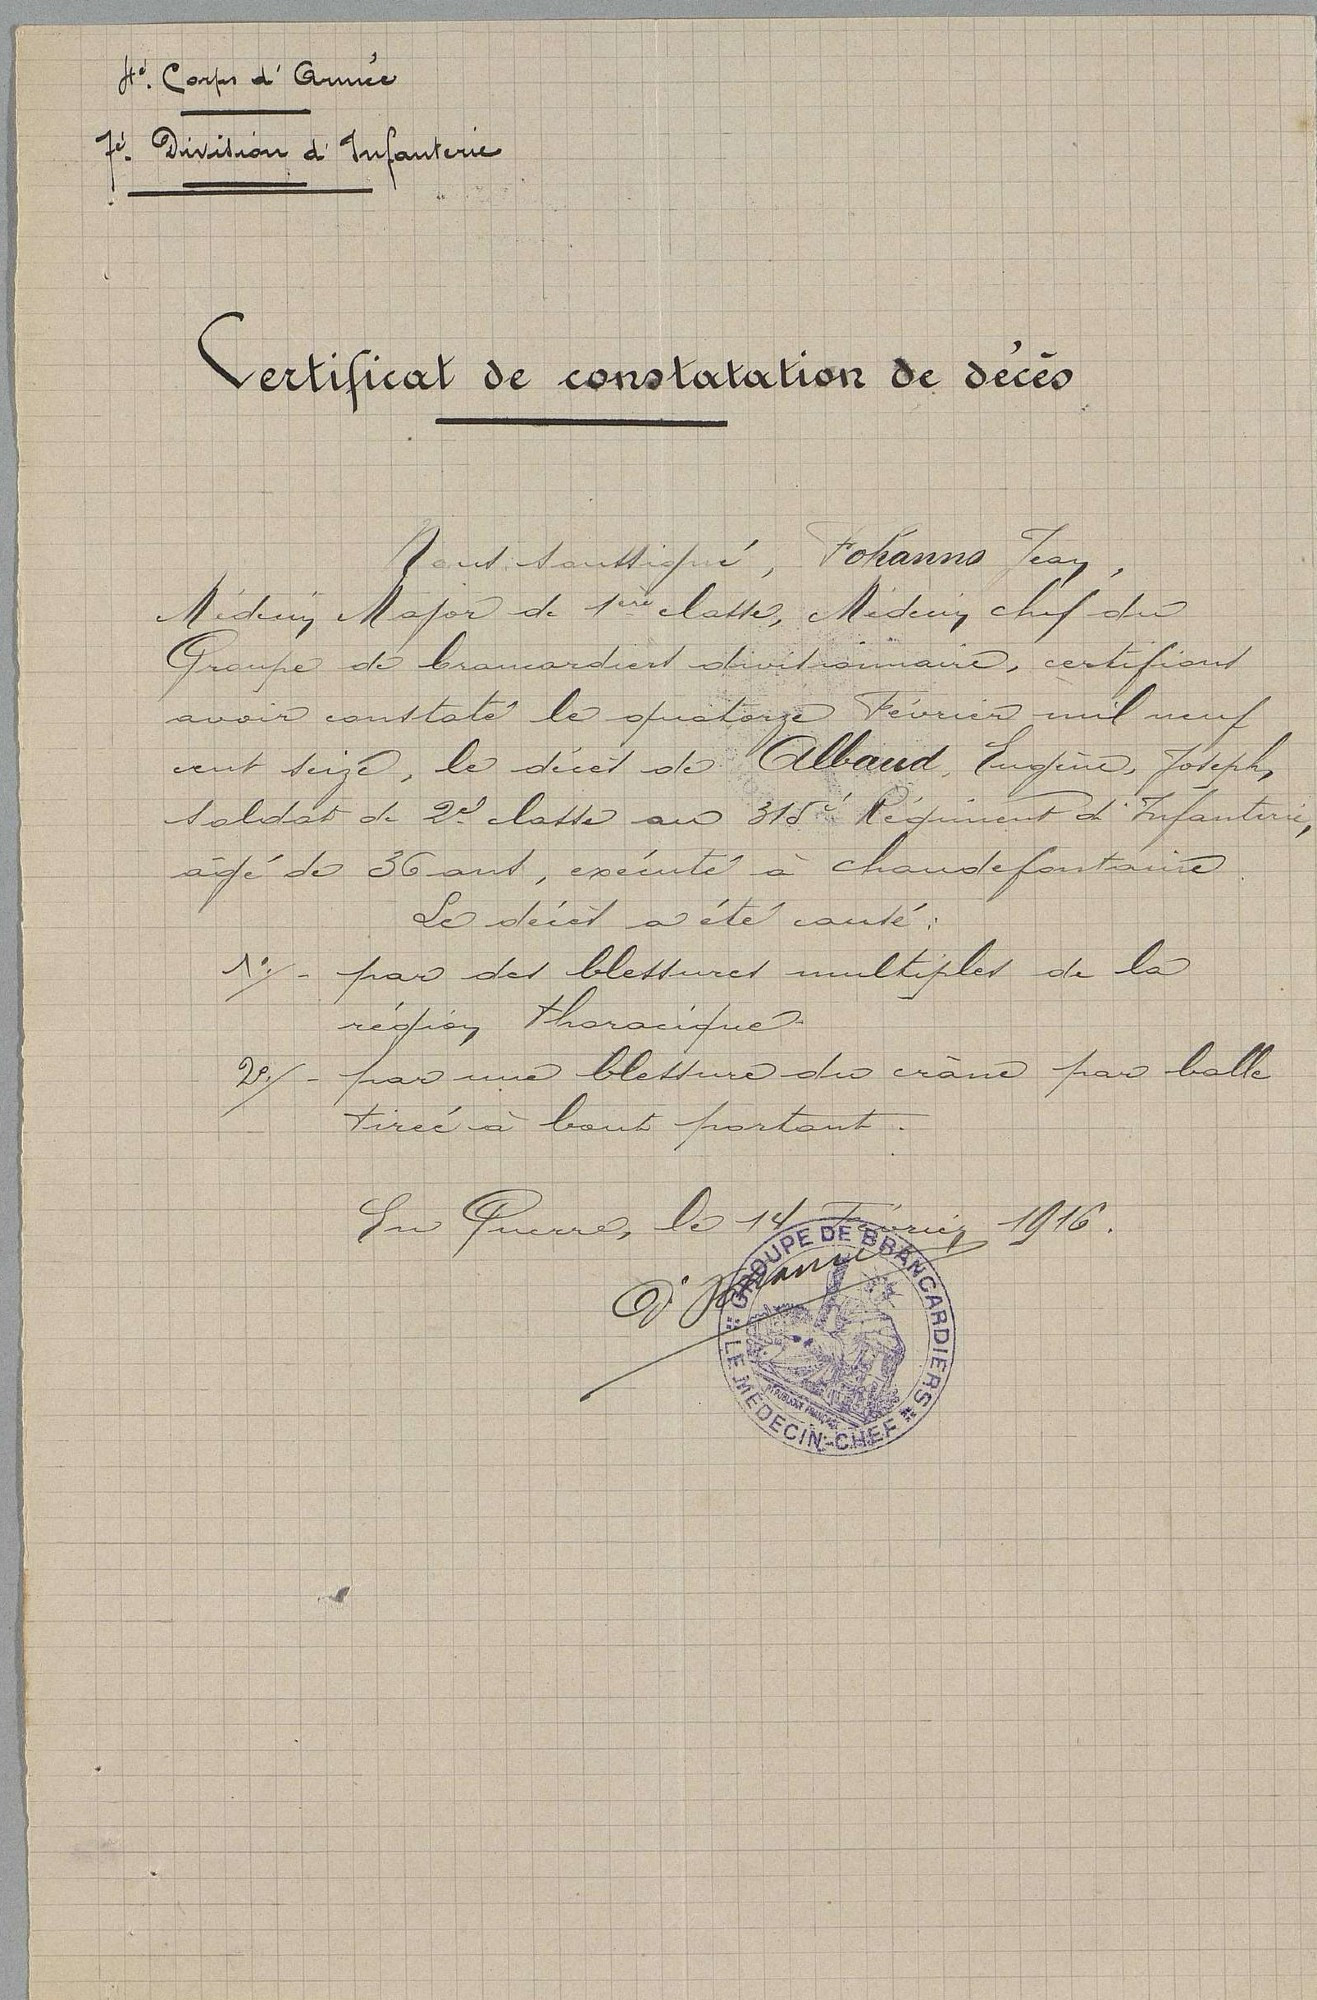 4e. Corps d'Armée
7e. Division d'Infanterie
Certificat de constatation de décès
Nous soussigné, Fohanno Jean,
Médecin Major de 1ère classe, Médecin chef du
Groupe de brancardiers divisionnaire, certifions
avoir constaté le quatorze Février mil neuf
cent seize, le décès de Albaud, Eugène, Joseph,
soldat de 2e classe au 315e Régiment d'Infanterie,
âgé de 36 ans, exécuté à Chaudefontaine.
Le décès a été causé:
1º/- par des blessures multiples de la
région thoracique.
2º/- par une blessure du crâne par balle
tirée à bout portant.
En Guerre, le 14 Février 1916.
Dr Fohanno
GROUPE DE BRANCARDIERS
LE MÉDECIN-CHEF
RÉPUBLIQUE FRANÇAISE